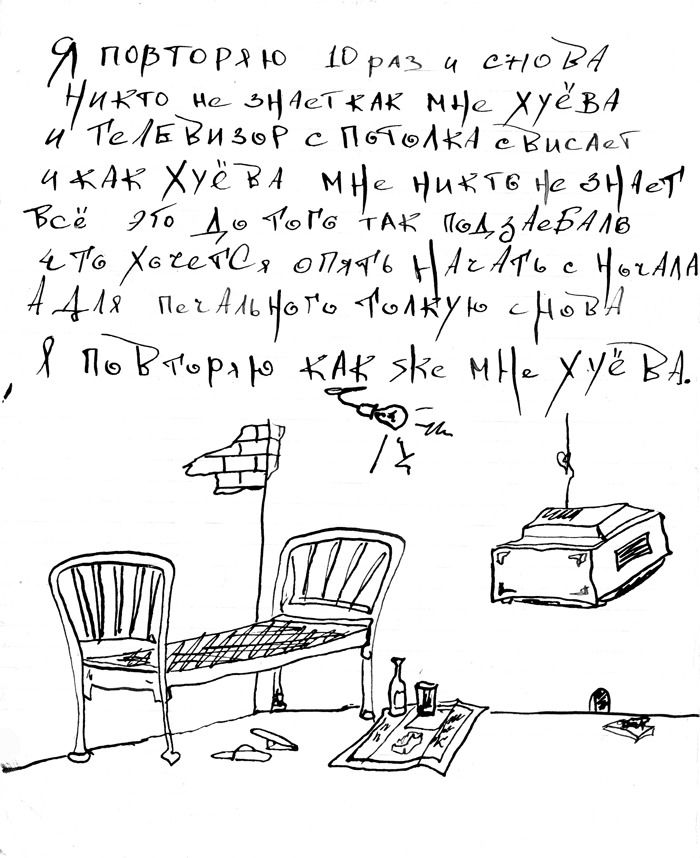 Я повторяю 10 раз и снова
Никто не знает как мне хуёва
и телевизор с потолка свисает
и как хуёва мне никто не знает
Всё это до того так подзаебало
что хочется опять начать с начала
А для печального толкую снова
Я повторяю как же мне хуёва.